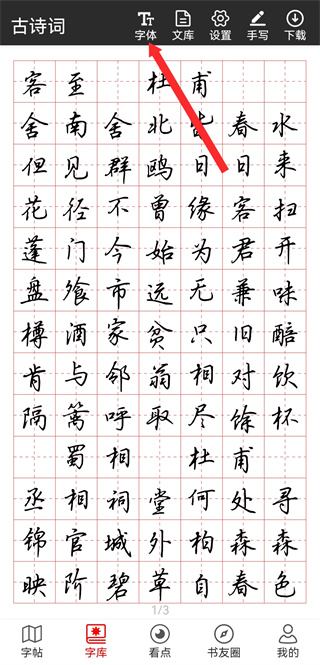 古诗词
字体 文库 设置 手写 下载
客至 杜甫
舍南舍北皆春水
但见群鸥日日来
花径不曾缘客扫
蓬门今始为君开
盘飧市远无兼味
樽酒家贫只旧醅
肯与邻翁相对饮
隔篱呼取尽馀杯
蜀相 杜甫
丞相祠堂何处寻
锦官城外柏森森
映阶碧草自春色
1/3
字帖 字库 看点 书友圈 我的